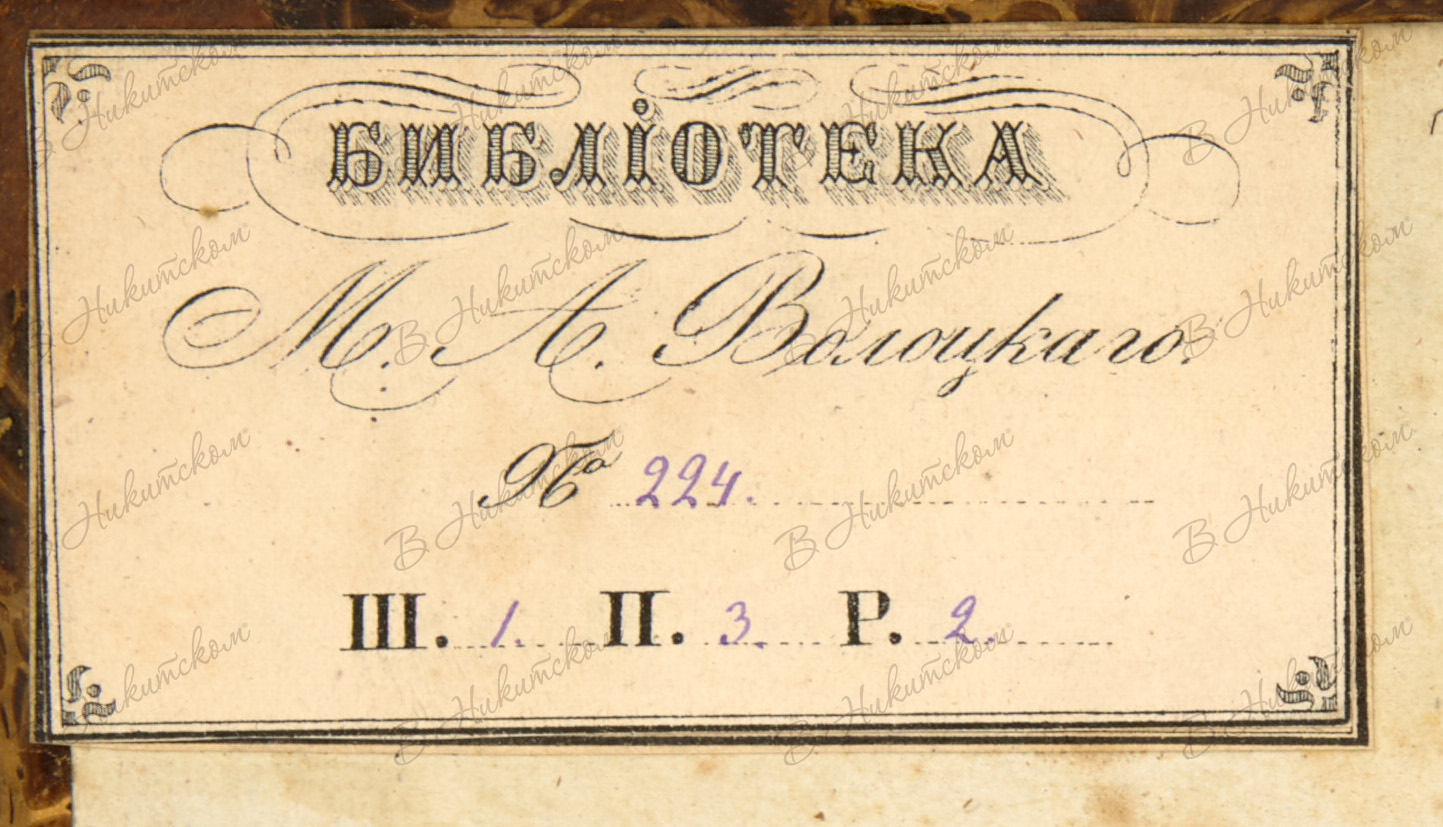 БИБЛІОТЕКА
М. А. Волоцкаго.
№ 224.
Ш. 1. П. 3. Р. 2.
В Никитском